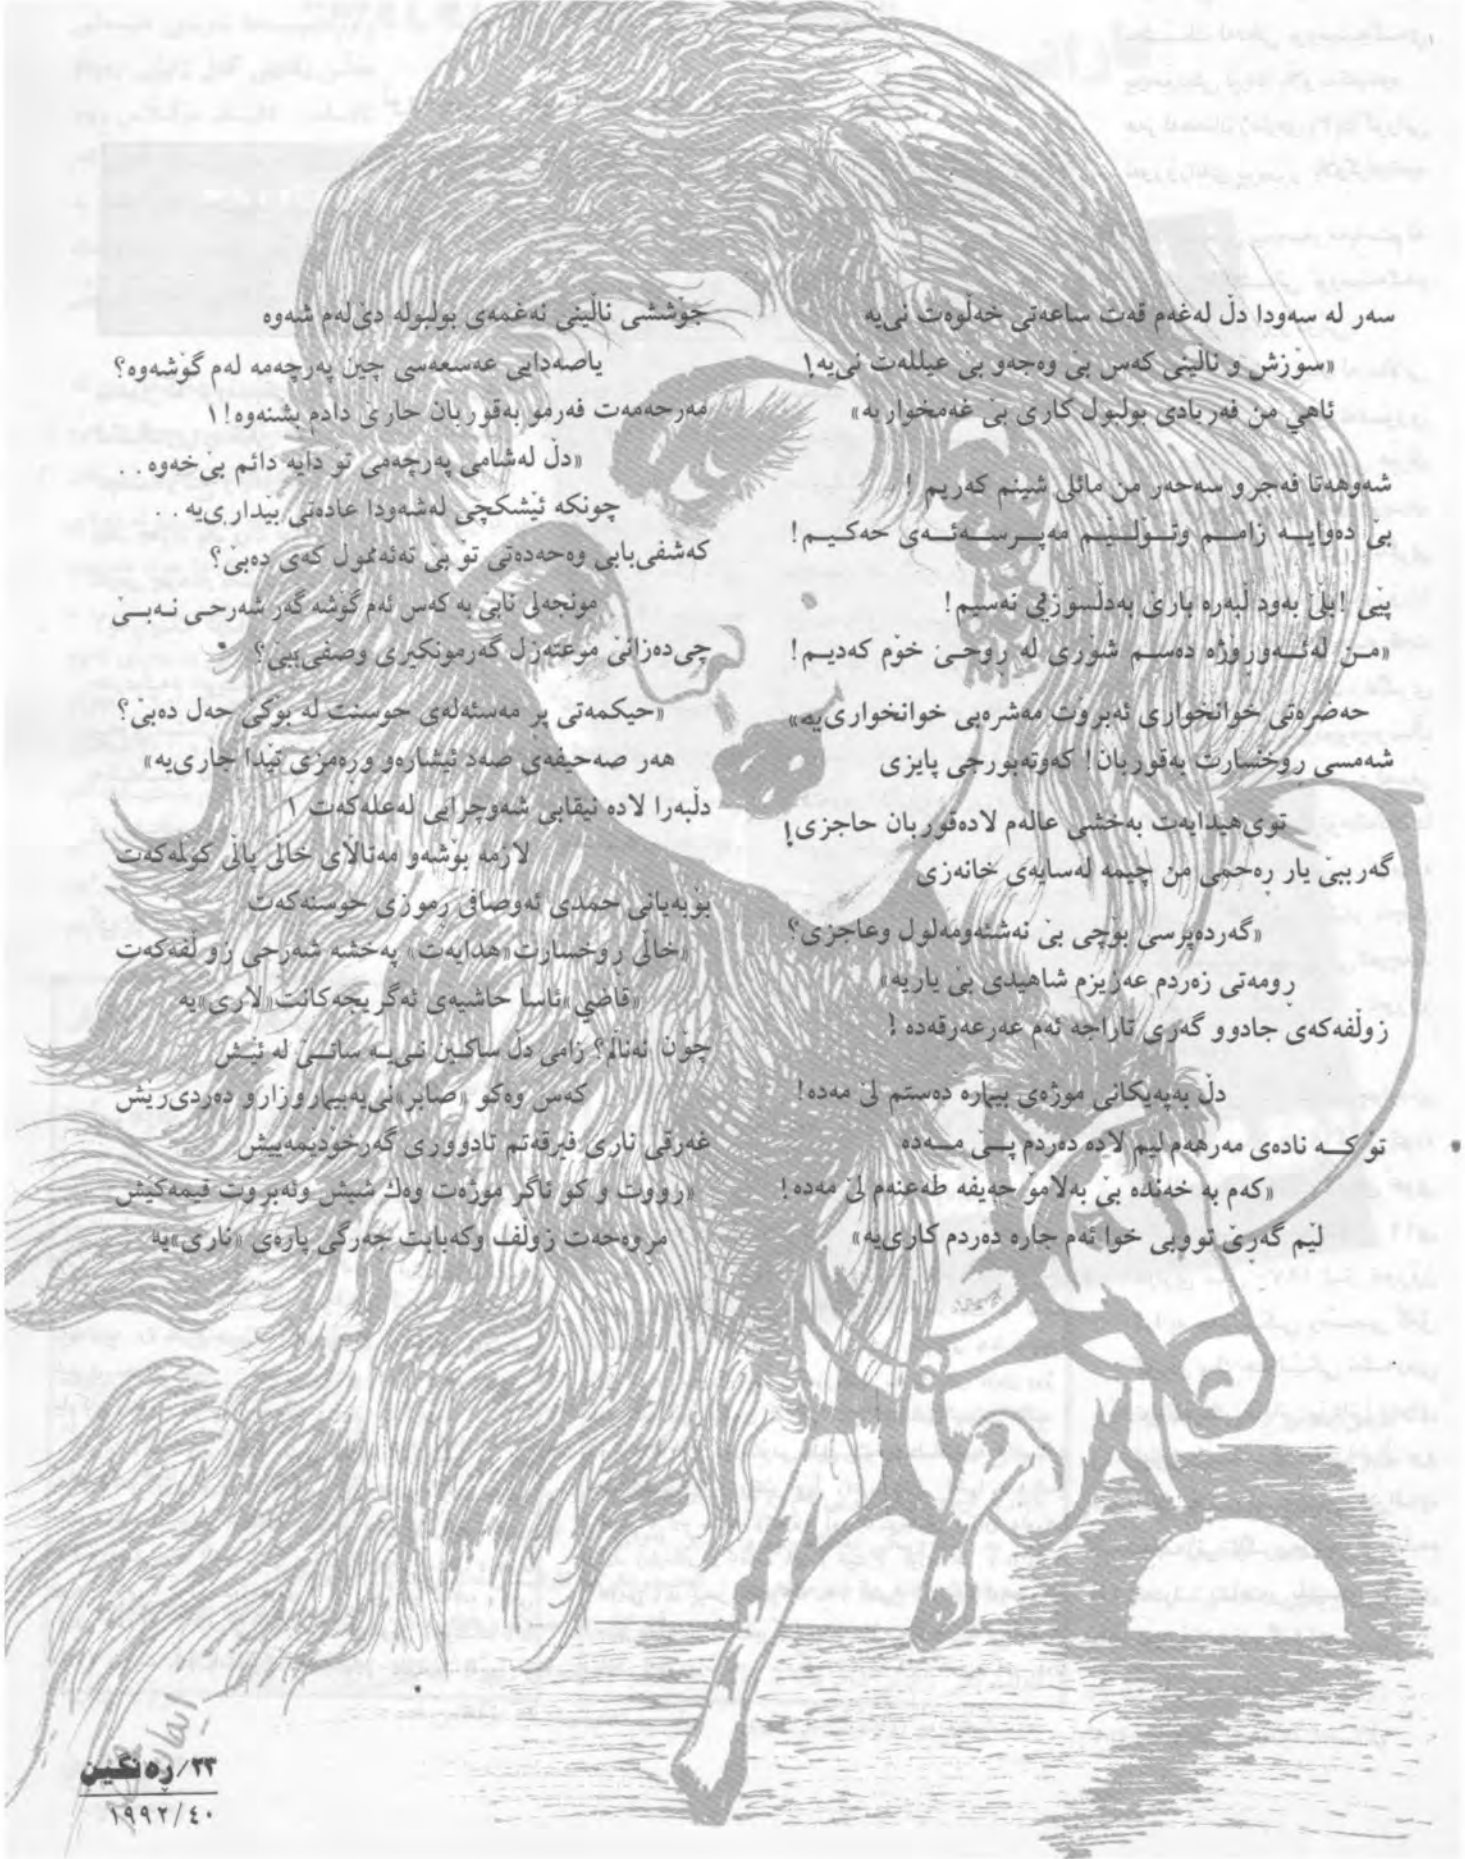 سەر لە سەودا دڵ لەغەم قەت ساعەتی خەڵوەت نیە
«سۆزش و ناڵینی کەس بێ وەجەو بێ عیللەت نیە!
ئاهي من فەریادی بولبول کاری بێ غەمخواریە»
شەوهەتا فەجرو سەحەر من مائلی شینم کەریم !
بێ دەوایـە زامـم وتـۆلـێـم مەپـرسـەئـەی حەکـیـم!
پێی !بڵێ بەود ڵبەرە بارێ بەدڵسۆزێی نەسیم!
«مـن لەئـەورۆژە دەسـم شۆری لە ڕوحـێ خۆم کەدیـم!
حەضرەتی خوانخواری ئەبروت مەشرەبی خوانخواری‌یە»
شەمسی روخسارت بەقوربان! کەوتەبورجی پایزی
توی هیدایەت بەخشی عالەم لادەقوربان حاجزی!
گەر ببێ یار ڕەحمی من چیمە لەسایەی خانەزی
«گەردەپرسی بۆچی بێ نەشئەومەلول وعاجزی؟
ڕومەتی زەردم عەزیزم شاهیدی بێ یاریە»
زوڵفەکەی جادوو گەری تاراجە ئەم عەرعەرقەدە !
دڵ بەپەیکانی موژەی بیمارە دەستم لێ مەدە!
تۆ کـە نادەی مەرهەم لیم لادە دەردم پـێ مـەدە
«کەم بە خەندە بێ بەلامۆ حەیفە طەعنەم لێ مەدە!
لێم گەڕێ تووبی خوا ئەم جارە دەردم کاری‌یە»
جۆششی ناڵینی نەغمەی بولبولە دێ‌لەم شەوە
یاصەدایی عەسعەسی چین پەرچەمە لەم گۆشەوە؟
مەرحەمەت فەرمو بەقوربان جارێ دادم بشنەوە! ١
«دڵ لەشامی پەرچەمی تو دایە دائم بێ‌خەوە . .
چونکە ئێشکچی لەشەودا عادەتی بێداری‌یە . .
کەشفی‌بابی وەحەدەتی تۆ بێ تەئەممول کەی دەبێ؟
مونجەلی نابێ بە کەس ئەم گۆشە گەر شەرحی نـەبـێ
چی دەزانێ موعتەزل گەرمونکیری وصفی‌بی؟
«حیکمەتی پر مەسئەلەی حوسنت لە بۆکێ حەل دەبێ؟
هەر صەحیفەی صەد ئیشارەو ورەمزی تێدا جاری‌یە»
دڵبەرا لادە نیقابی شەوچرایی لەعلەکەت ١
لازمە بۆشەو مەتاڵای خاڵی پاڵی کوڵمەکەت
بۆبەیانی حمدی ئەوصافی ڕموزی حوسنەکەت
«خاڵی روخسارت«هدایەت» پەخشە شەرحی زو لفەکەت
«قاضي»ئاسا حاشیەی ئەگریجەکانت«لاری»یە
چۆن نەناڵم؟ زامی دڵ ساکـین نـی‌یـە ساتـێ لە ئێـش
کەس وەکو «صابر»نی‌یەبیمارو زارو دەردی‌ریش
غەرقی ناری فیرقەتم تادووری گەرخۆدێمەپیش
«رووت و کو ئاگر موژەت وەك شیش وئەبروت قیمەکیش
مروەحەت زوڵف وکەبابت جەرگی پارەی «ناری»یە
ایمان
٣٣/ڕەنگین
١٩٩٢/٤٠